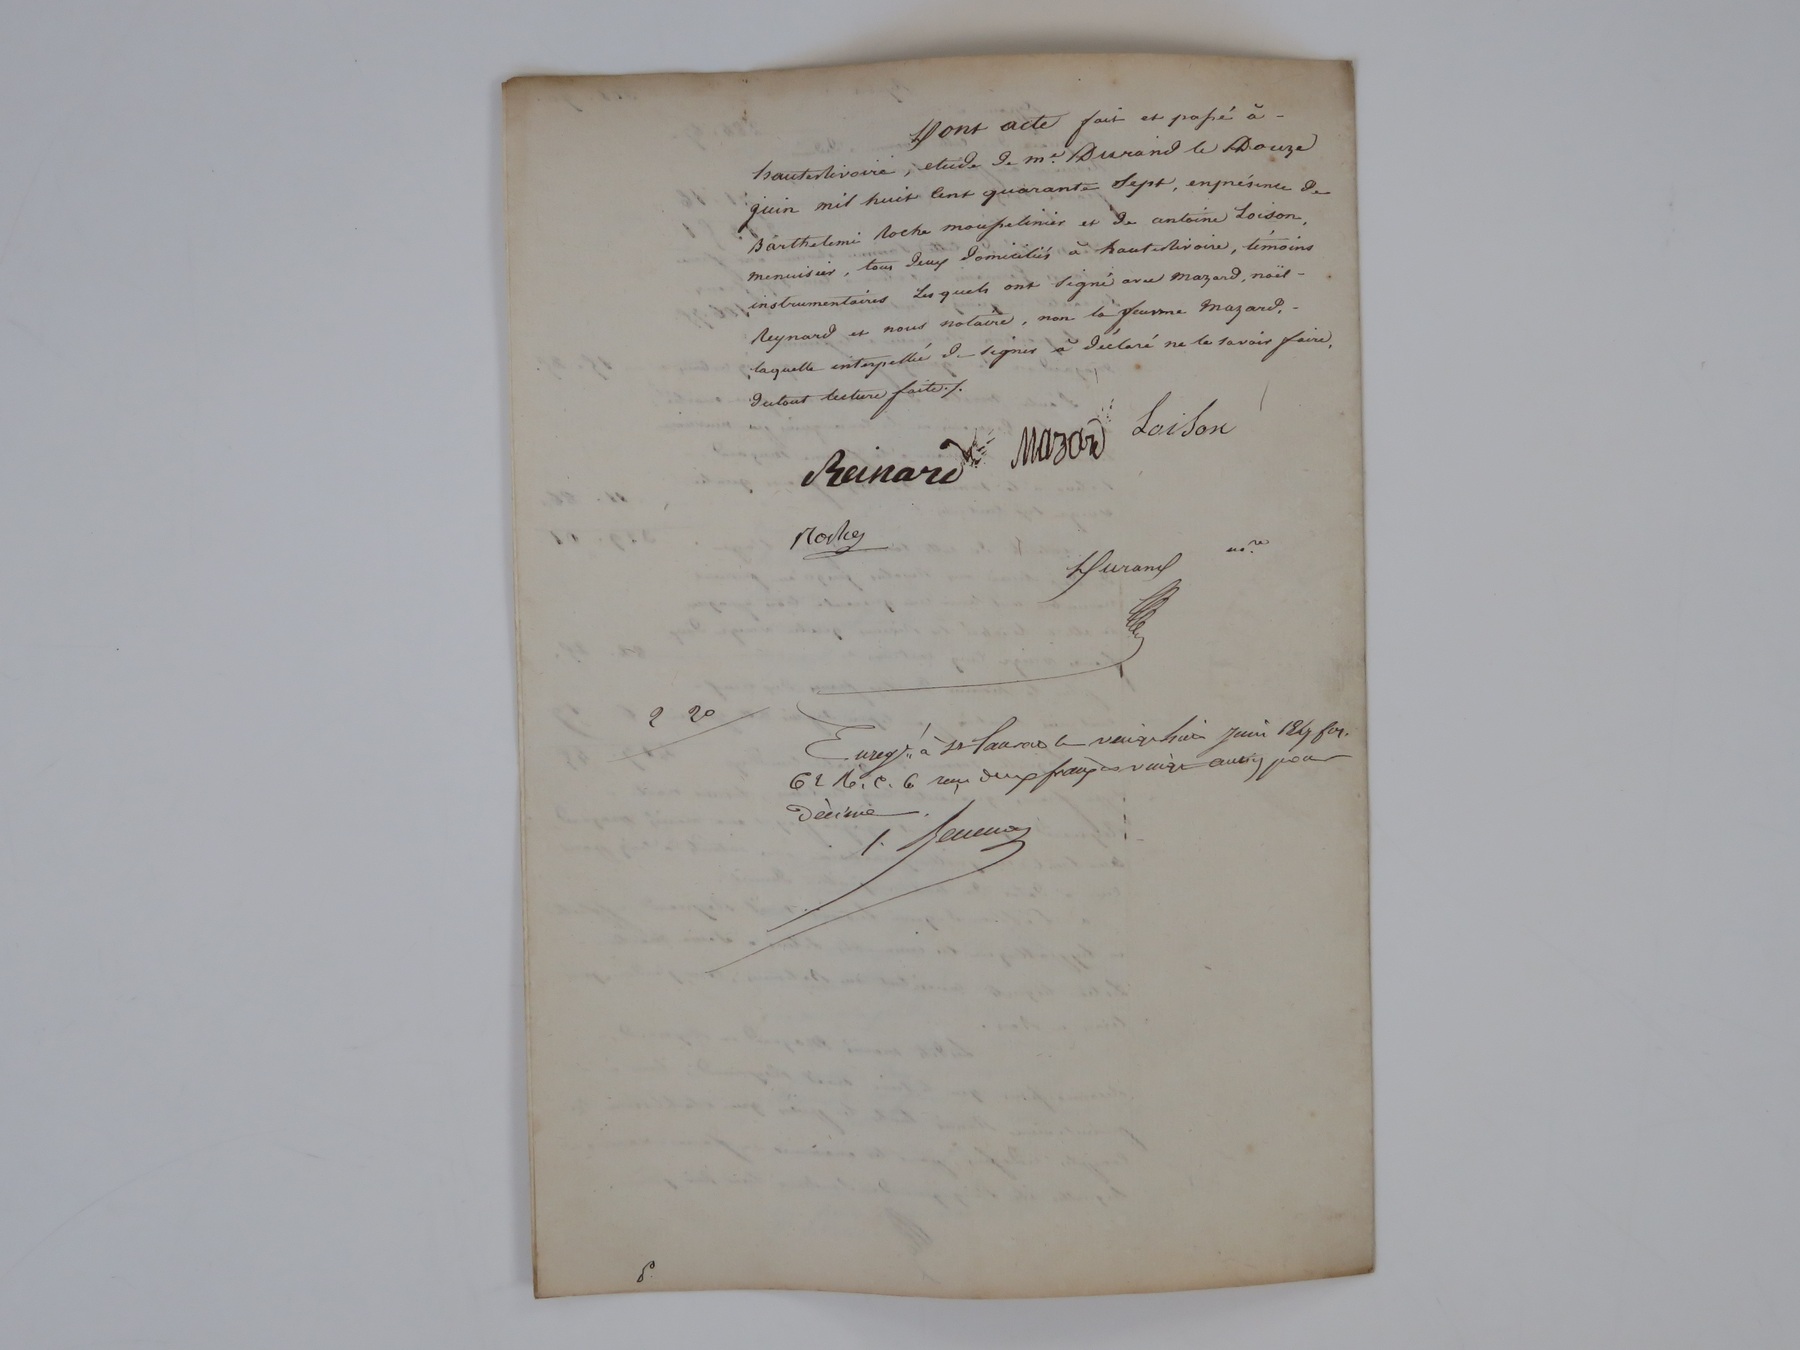 Dont acte fait et passé à -
hauterivoire, etude de me. Durand le Douze
juin mil huit Cent quarante Sept, en présence de
Barthelemi Roche moupelinier et de antoine Loison,
menuisier, tous deux domiciliés à hauterivoire, témoins
instrumentaires Lesquels ont signé avec Mazard, noël -
Reynard et nous notaire, non la femme Mazard, -
laquelle interpellé de signer à déclaré ne le savoir faire,
du tout lecture faite./.
Reinard Mazard Loison
Roche
Durand nore.
2 20
Enregé. à St Laurent le vingt huit juin 1847 fos.
62 Ro. C. 6 reçu deux francs vingt centes pour
Décime.
6